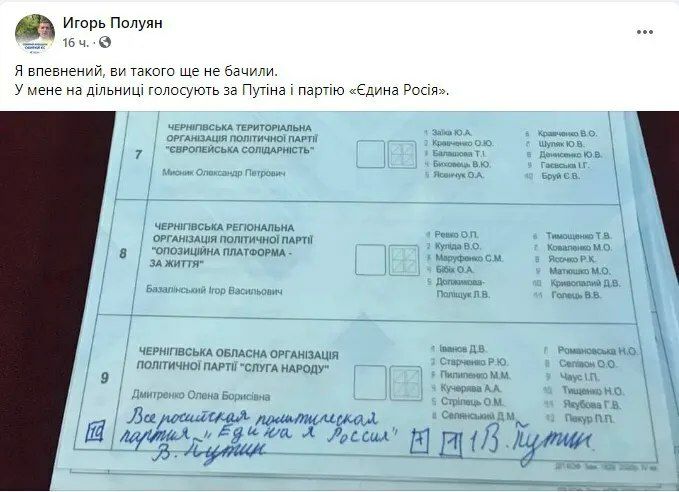 Игорь Полуян
16 ч.
Я впевнений, ви такого ще не бачили.
У мене на дільниці голосують за Путіна і партію «Єдина Росія».
7
ЧЕРНІГІВСЬКА ТЕРИТОРІАЛЬНА
ОРГАНІЗАЦІЯ ПОЛІТИЧНОЇ ПАРТІЇ
"ЄВРОПЕЙСЬКА СОЛІДАРНІСТЬ"
Мисник Олександр Петрович
1 Заїка Ю.А.
2 Кравченко О.Ю.
3 Балашова Т.І.
4 Биховець В.Ю.
5 Ясенчук О.А.
6 Кравченко В.О.
7 Шуляк Ю.В.
8 Денисенко Ю.В.
9 Гаєвська І.Г.
10 Бруй Є.В.
8
ЧЕРНІГІВСЬКА РЕГІОНАЛЬНА
ОРГАНІЗАЦІЯ ПОЛІТИЧНОЇ ПАРТІЇ
"ОПОЗИЦІЙНА ПЛАТФОРМА -
ЗА ЖИТТЯ"
Базалінський Ігор Васильович
1 Ревко О.П.
2 Куліда В.О.
3 Маруфенко С.М.
4 Бібік О.А.
5 Должикова-
Поліщук Л.В.
6 Тимощенко Т.В.
7 Коваленко М.О.
8 Ясочко Р.К.
9 Матюшко М.О.
10 Криволапий Д.В.
11 Голець В.В.
9
ЧЕРНІГІВСЬКА ОБЛАСНА ОРГАНІЗАЦІЯ
ПОЛІТИЧНОЇ ПАРТІЇ "СЛУГА НАРОДУ"
Дмитренко Олена Борисівна
1 Іванов Д.В.
2 Старченко Р.Ю.
3 Пилипенко М.М.
4 Кучерява А.А.
5 Стрілець О.М.
6 Селянський Д.М.
7 Романовська Н.О.
8 Селівон О.О.
9 Чаус І.П.
10 Тищенко Н.О.
11 Якубова Г.В.
12 Пекур П.П.
10 Всероссийская политическая
партия "Единая Россия"
В. Путин
7 1 1 В. Путин